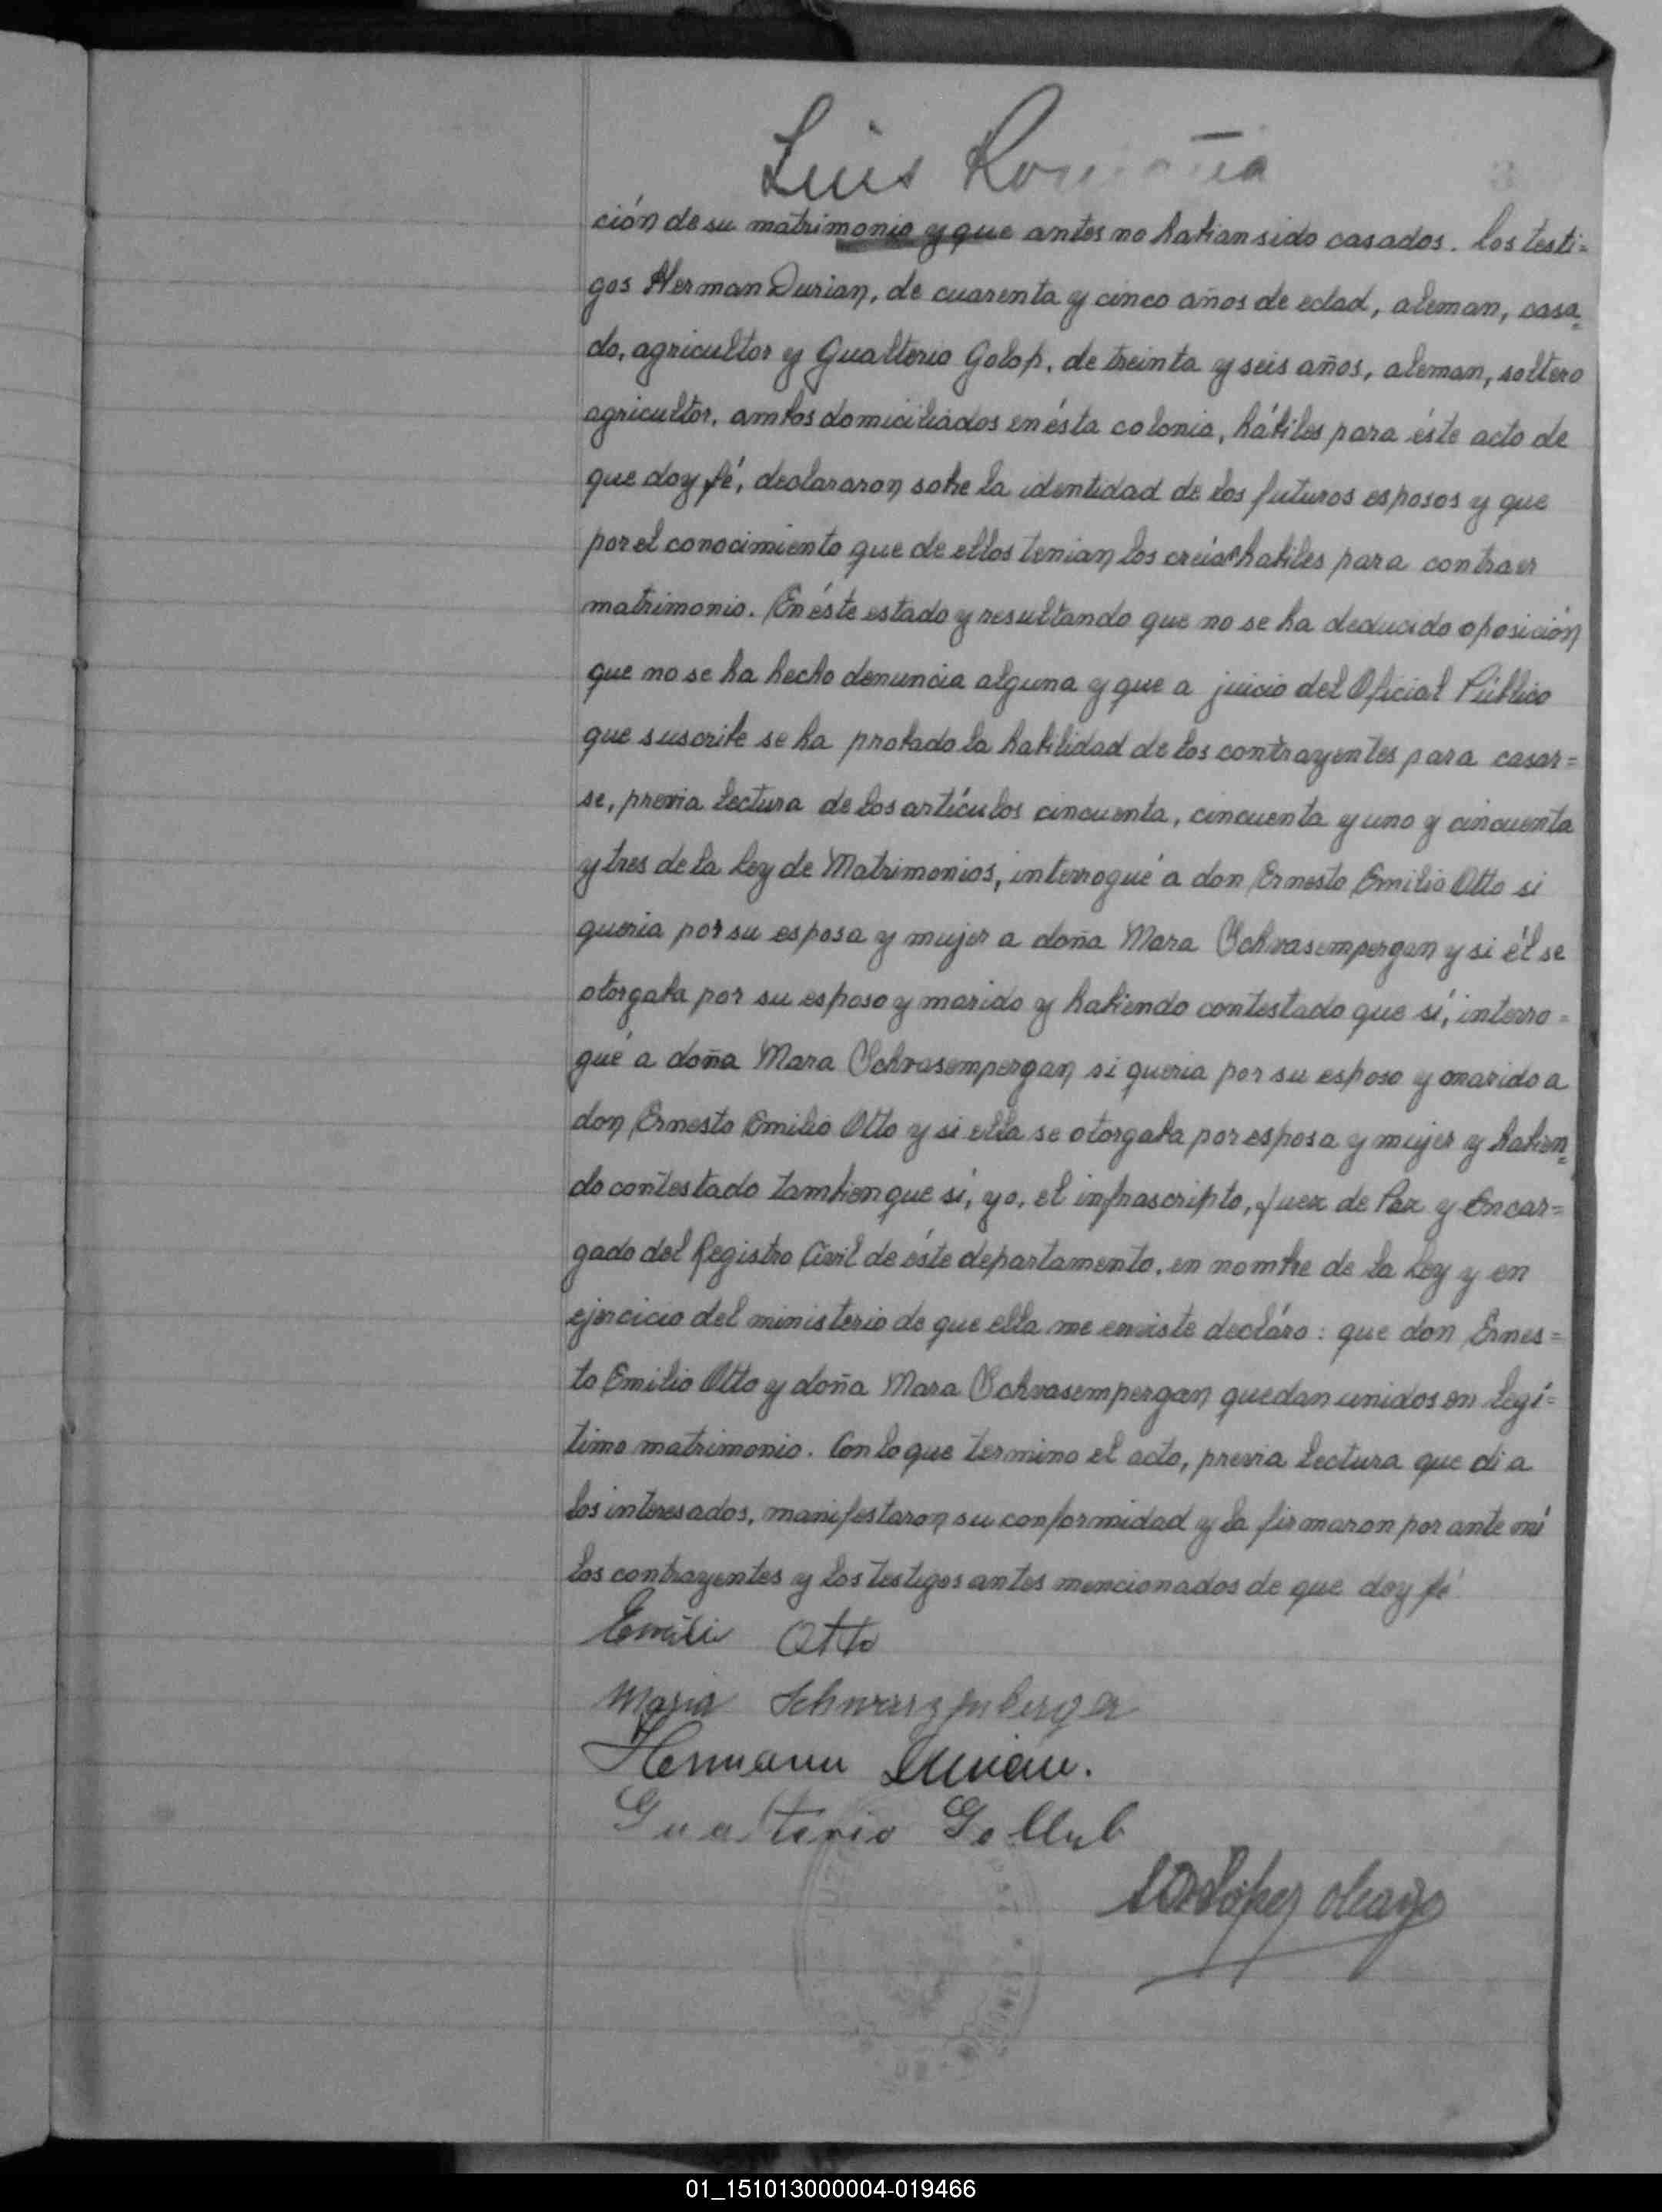 Luis Romaña
ción de su matrimonio y que antes no habian sido casados. Los testi=
gos Herman Durian, de cuarenta y cinco años de edad, aleman, casa=
do, agricultor y Gualterio Golop, de treinta y seis años, aleman, soltero
agricultor, ambos domiciliados en ésta colonia, hábiles para éste acto de
que doy fé, declararon sobre la identidad de los futuros esposos y que
por el conocimiento que de ellos tenian los creían habiles para contraer
matrimonio. En éste estado y resultando que no se ha deducido oposición
que no se ha hecho denuncia alguna y que a juicio del Oficial Público
que suscribe se ha probado la habilidad de los contrayentes para casar=
se, previa lectura de los artículos cincuenta, cincuenta y uno y cincuenta
y tres de la Ley de Matrimonios, interrogué a don Ernesto Emilio Otto si
queria por su esposa y mujer a doña Mara Schvasempergan y si él se
otorgaba por su esposo y marido y habiendo contestado que sí, interro=
gué a doña Mara Schvasempergan si queria por su esposo y marido a
don Ernesto Emilio Otto y si ella se otorgaba por esposa y mujer y habien=
do contestado tambien que sí, yo, el infrascripto, Juez de Paz y Encar=
gado del Registro Civil de éste departamento, en nombre de la Ley y en
ejercicio del ministerio de que ella me enviste decláro: que don Ernes=
to Emilio Otto y doña Mara Schvasempergan quedan unidos en legí=
timo matrimonio. Con lo que termino el acto, previa lectura que di a
los interesados, manifestaron su conformidad y la firmaron por ante mí
los contrayentes y los testigos antes mencionados de que doy fé
Emilio Otto
Maria Schwarzenberger
Hermann Durian.
Gualterio Gollub
01_151013000004-019466